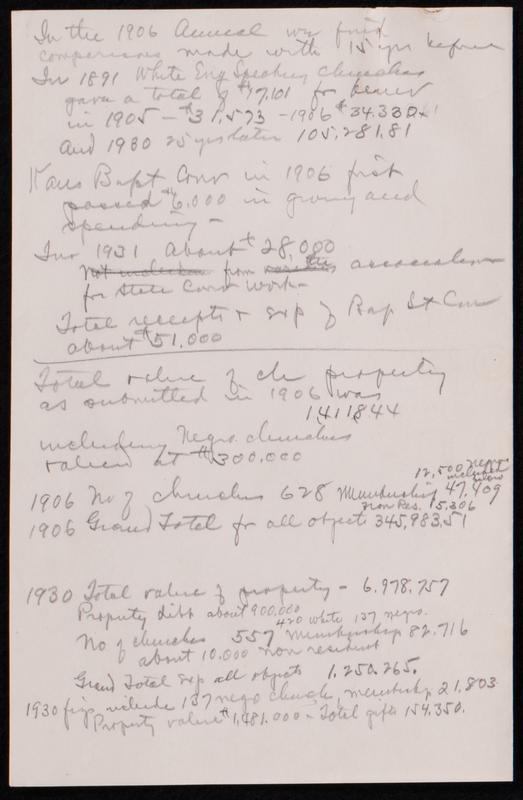 In the 1906 Annual we find
comparisons made with 15 yrs before
In 1891 White Eng Speaking churches
gave a total of $17,101 for benev
in 1905 - $31,573 - 1906 $34.330
And 1930 25 yrs later 105,281.81
Kans Bapt Conv in 1906 first
passed $6,000 in giving and
spending -
In 1931 about $28,000
from associations
for State Conv work -
Total receipts & exp of Bap St Con
about $51,000
Total value of ch property
as submitted in 1906 was
1411844
including Negro churches
valued at $300.000
12,500 negro
included
1906 No of churches 628 Membership 47,409
non Res. 15,306
1906 Grand Total for all objects 345,983.51
1930 Total value of property - 6.978.757
Property debt about 900.000
420 white 137 negro.
No of churches 557 Membership 82.716
about 10.000 non resident
Grand Total exp all objects 1.250.265.
1930 figs include 137 negro church, membership 21,803
Property value $1,481.000 - Total gifts 154.350.